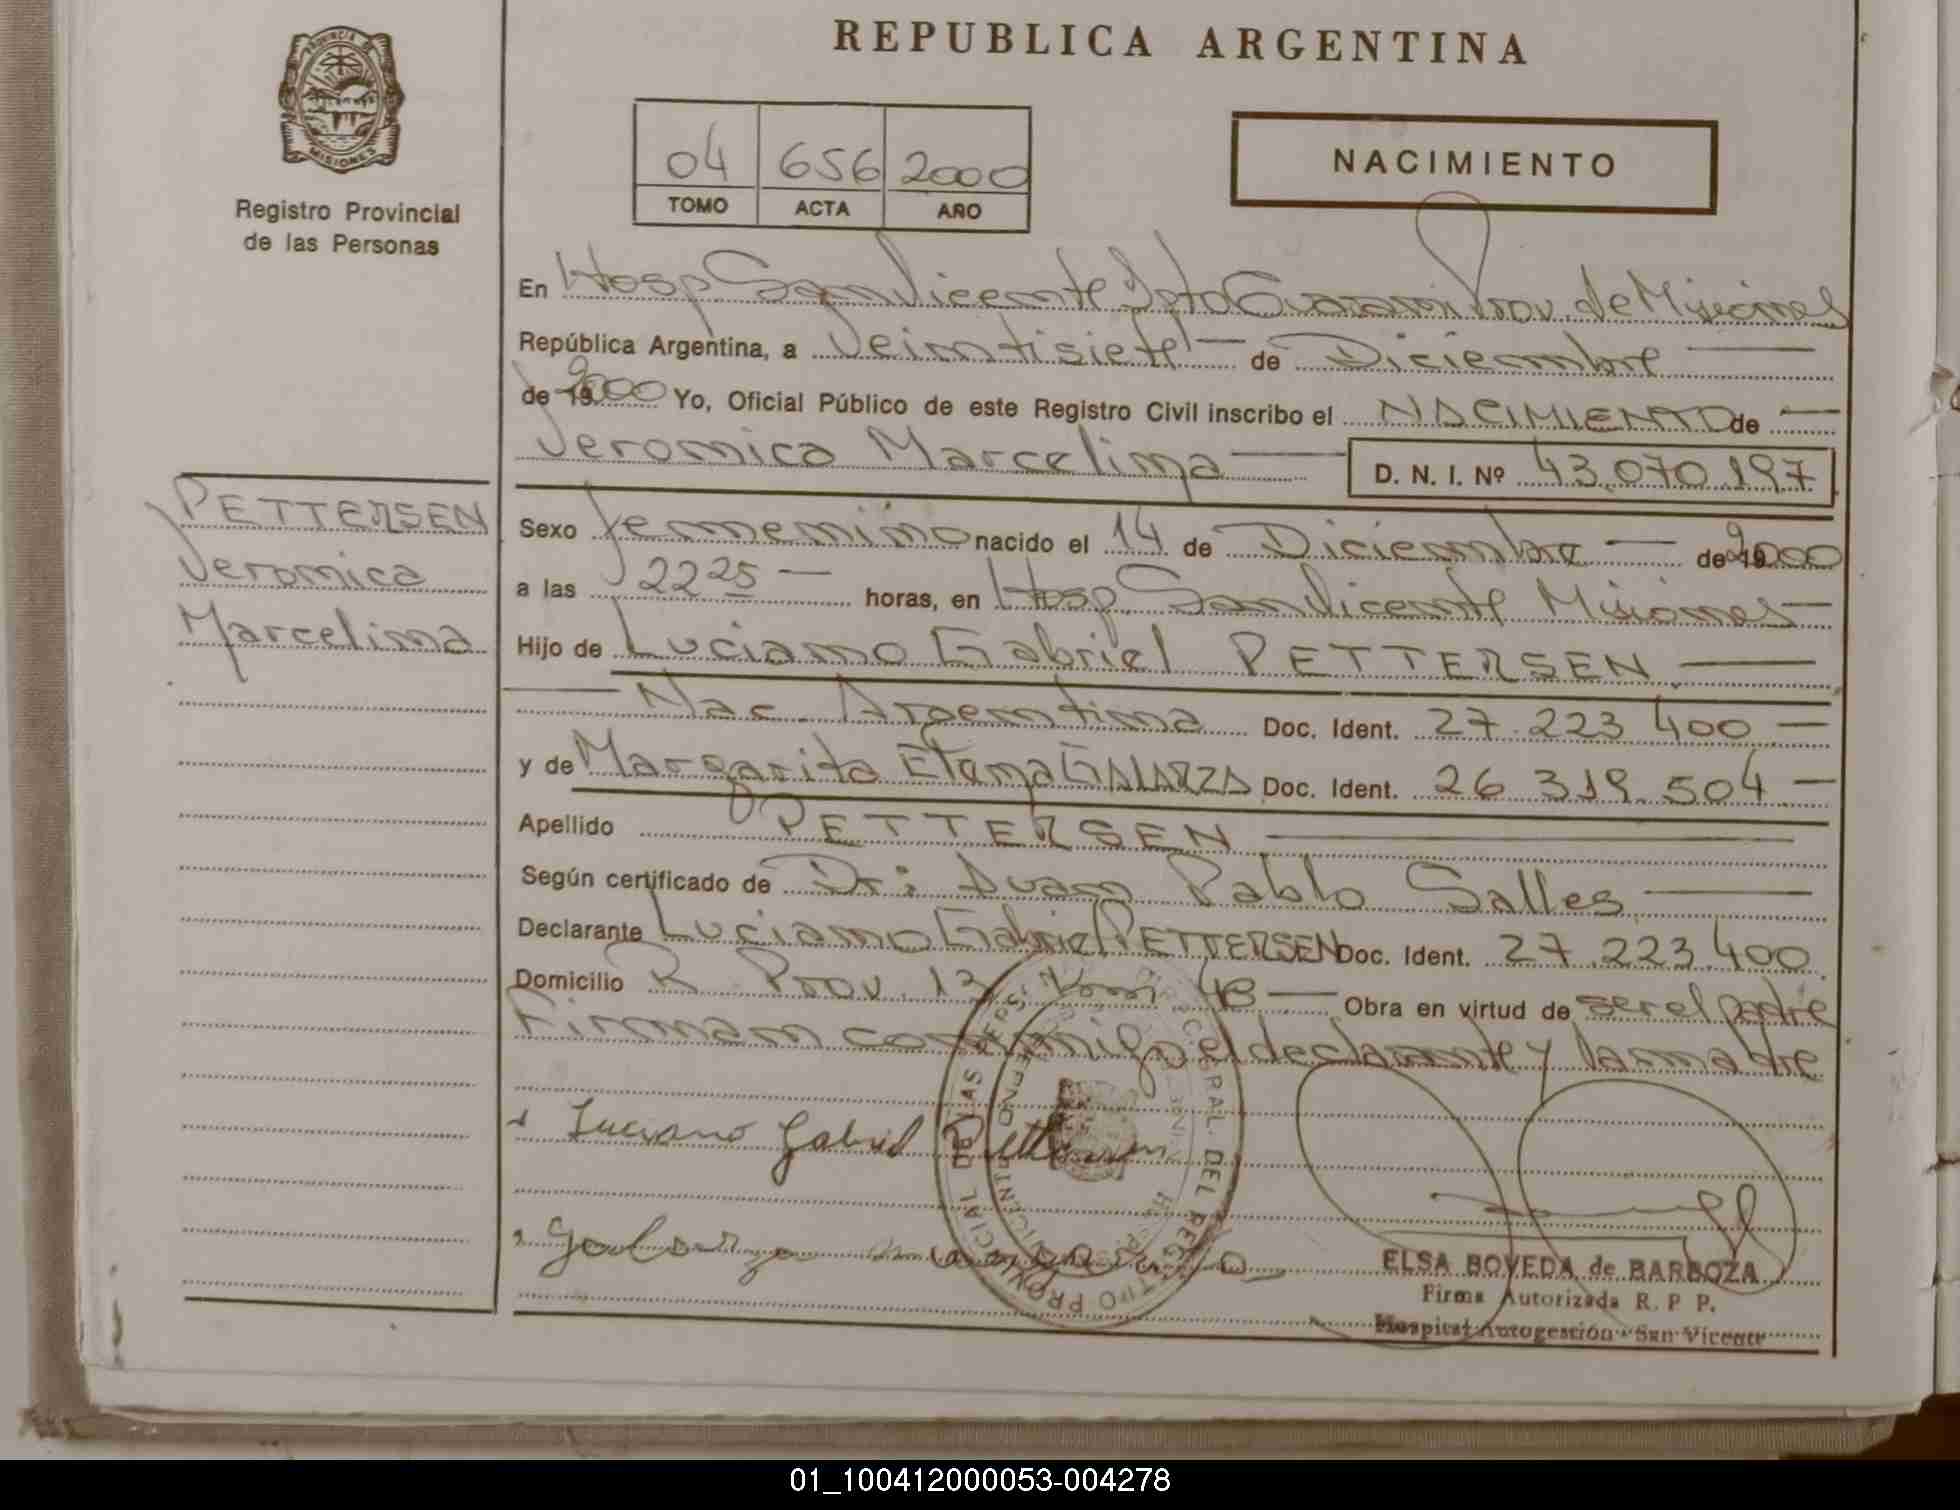 REPUBLICA ARGENTINA
PROVINCIA DE
MISIONES
Registro Provincial
de las Personas
04 656 2000
TOMO ACTA AÑO
NACIMIENTO
En Hosp San Vicente Dpto Guarani Prov. de Misiones
República Argentina, a Veintisiete de Diciembre
de 19 2000 Yo, Oficial Público de este Registro Civil inscribo el NACIMIENTO de
Veronica Marcelina D. N. I. Nº 43.070.197
PETTERSEN
Veronica
Marcelina
Sexo femenino nacido el 14 de Diciembre de 19 2000
a las 22 25 horas, en Hosp. San Vicente Misiones
Hijo de Luciano Gabriel PETTERSEN
Nac. Argentina Doc. Ident. 27.223.400
y de Margarita GALARZA Doc. Ident. 26.319.504
Apellido PETTERSEN
Según certificado de Dr: Juan Pablo Salles
Declarante Luciano Gabriel PETTERSEN Doc. Ident. 27.223.400
Domicilio R. Prov. 13 Obra en virtud de ser el padre
Firman conmigo el declarante y la madre
Luciano Gabriel Pettersen
Galarza Margarita
ELSA BOVEDA de BARBOZA
Firma Autorizada R. P P.
Hospital Autogestión - San Vicente
01_100412000053-004278